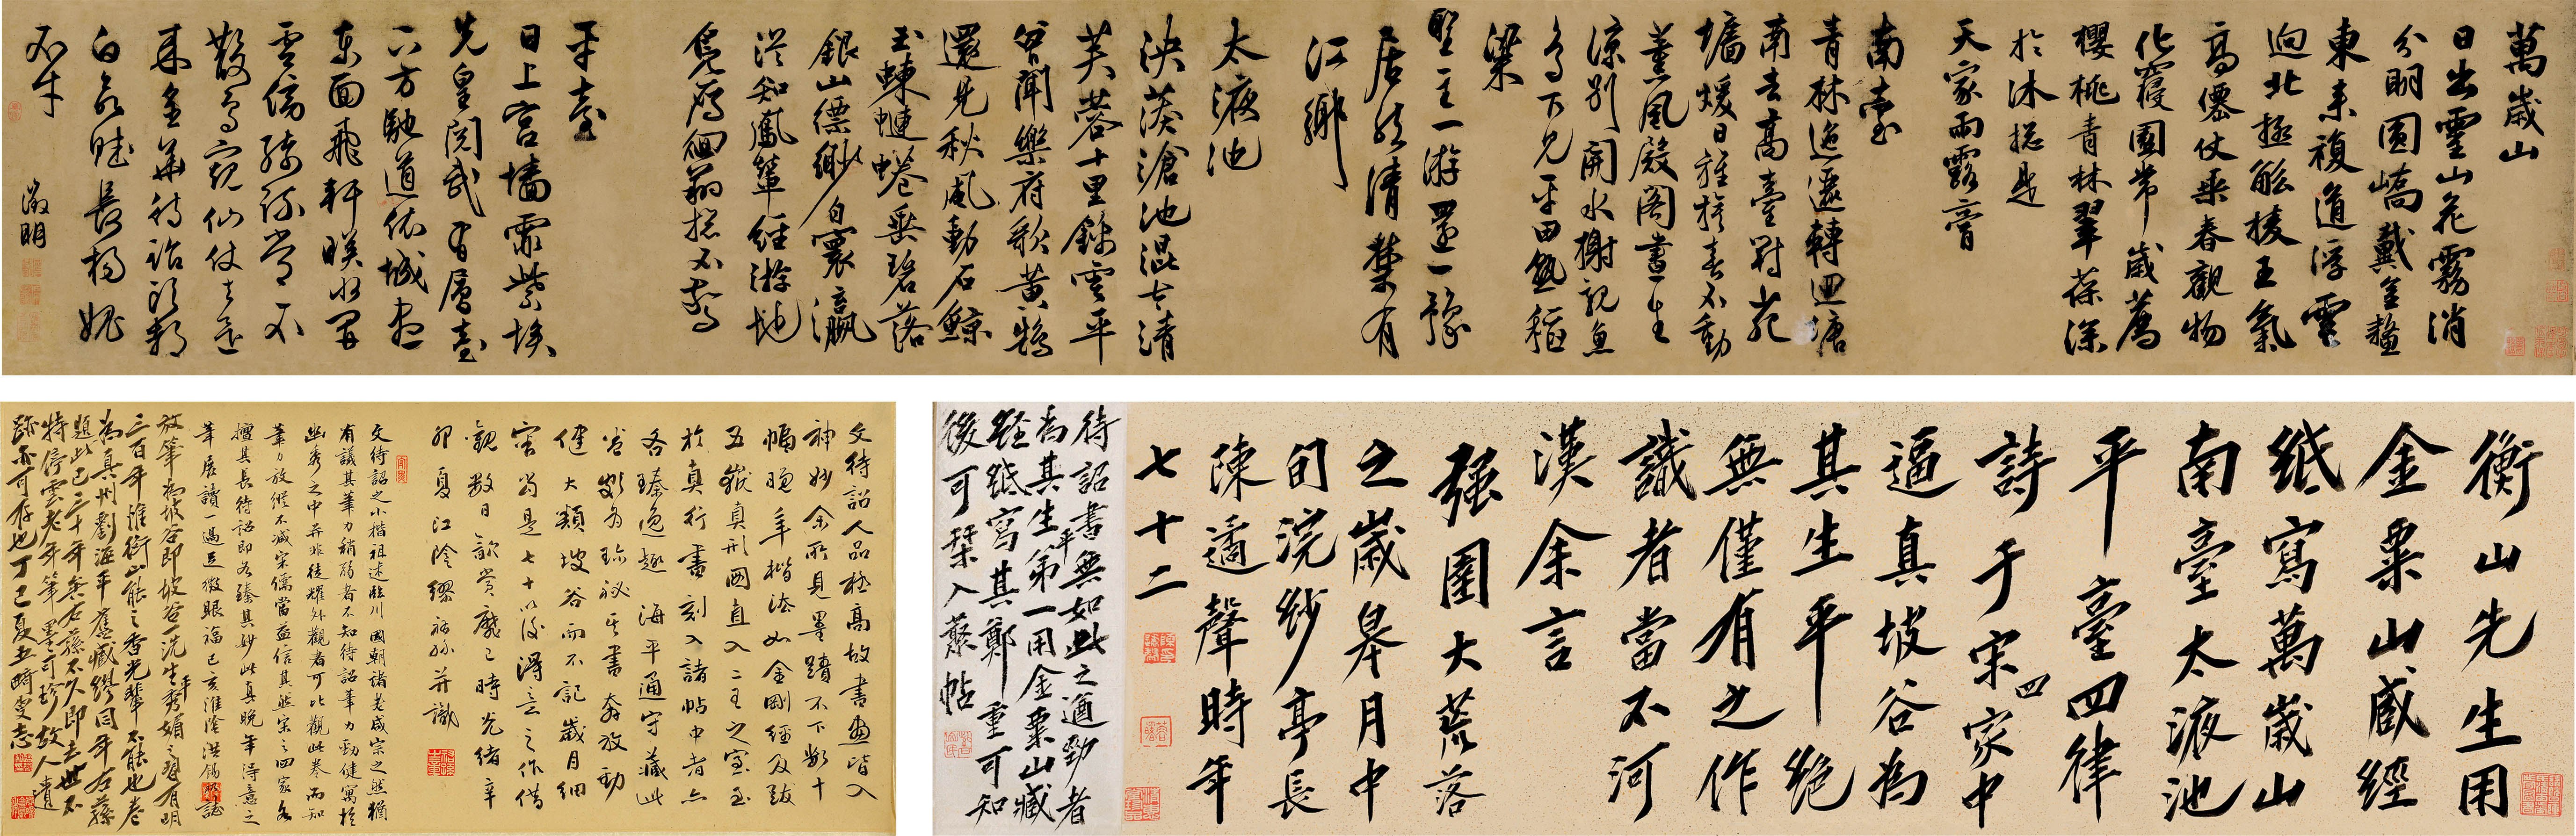 萬歲山
日出靈山花霧消
分明圓嶠戴金鼇
東來複道浮雲
迥北極觚棱王氣
高僊仗乘春觀物
化寢園常歲薦
櫻桃青林翠葆深
於沐總是
天家雨露膏
南臺
青林迤邐轉迴塘
南去高臺對苑
墻煖日旌旗春不動
薰風殿閣晝生
涼別開水榭親魚
鳥下見平田熟稻
粱
聖主一游還一豫
居然清禁有
江鄉
太液池
泱漭滄池混太清
芙蓉十里錦雲平
曾聞樂府歌黃鵠
還見秋風動石鯨
玉蝀蜷垂碧落
銀山縹緲自寰瀛
從知鳳輦經游地
鳧雁徊翔總不驚
平臺
日上宮墻霏紫埃
先皇閱武有層臺
下方馳道依城盡
東面飛軒映水開
雲傍綺疏常不
散鳥窺仙仗去還
來金華待詔頭都
白欲賦長楊媿
不才
徵明
衡山先生用
金粟山藏經
紙寫萬歲山
南臺太液池
平臺四律
詩于宋四家中
逼真坡谷為
其生平絕
無僅有之作
識者當不河
漢余言
強圉大荒落
之歲皋月中
旬浣紗亭長
陳遹聲時年
七十二
待詔書無如此之遒勁者
為其生平第一用金粟山藏
經紙寫其鄭重可知
後可槧入叢帖
文待詔人品極高故書畫皆入
神妙余所見墨蹟不下數十
幅晚年楷法如金剛經及跋
五嶽真形圖直入二王之室至
於真行書刻入諸帖中者亦
各臻逸趣海平通守藏此
卷頗為珍祕其書奔放勁
健大類坡谷而不記歲月細
審當是七十以後得意之作借
觀數日歎賞已時光緒辛
卯夏江陰繆祐孫并識
文待詔之小楷祖述臨川國朝諸老咸宗之然猶
有議其筆力稍弱者不知待詔筆力勁健寓於
幽秀之中非徒耀外觀者可比觀此卷而知
筆力放縱不減宋儒當益信其然宋之四家各
擅其長待詔即各臻其妙此真晚年得意之
筆展讀一過足徵眼福己亥淮陰洪錫謹
放筆為坡谷即坡谷一洗生平秀媚之習有明
三百年惟衡山能之香光輩不能也卷
為真州劉海平舊藏繆同年右蓀
題此已二十年矣右蓀不久即去世不
特停雲老年筆墨可珍故人遺
跡亦可存也丁巳夏五畸叟志